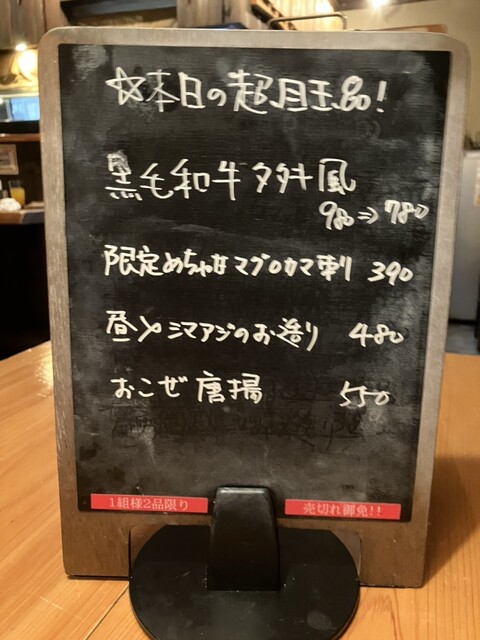 ☆本日の超目玉品!
黒毛和牛タタキ風
980⇒780
限定めちゃ甘マグロカマ刺 390
昼〆シマアジのお造り 480
おこぜ唐揚 550
1組様2品限り
売切れ御免!!